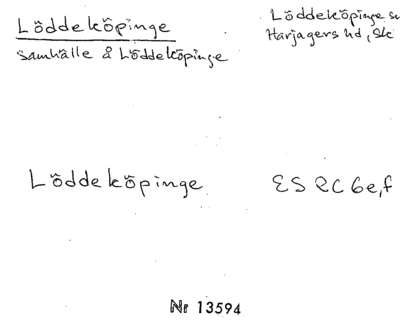 Löddeköpinge
Löddeköpinge sn
Harjagers hd, Sk
samhälle å Löddeköpinge
Löddeköpinge
ES 2C 6e,f
Nr 13594